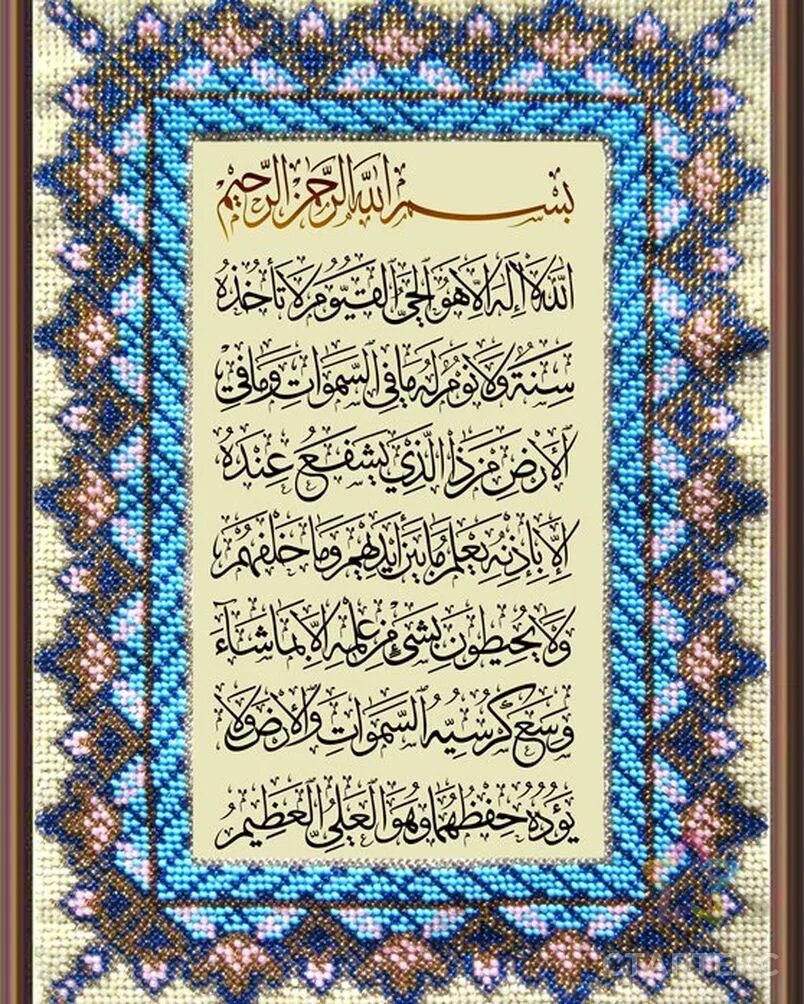 بسم الله الرحمن الرحيم
الله لا إله إلا هو الحي القيوم لا تأخذه
سنة ولا نوم له ما في السموات وما في
الأرض من ذا الذي يشفع عنده
إلا بإذنه يعلم ما بين أيديهم وما خلفهم
ولا يحيطون بشيء من علمه إلا بما شاء
وسع كرسيه السموات والأرض ولا
يؤده حفظهما وهو العلي العظيم
СТАРТЕКС